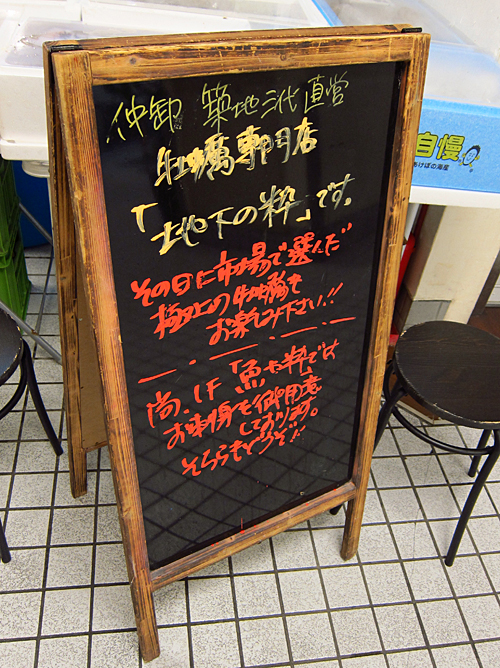 仲卸 築地三代 直営
牡蠣専門店
「地下の粋」です。
その日に市場で選んだ
極上の牡蠣を
お楽しみ下さい!!
尚、1F「魚や粋」では
お刺身を御用意
しております。
そちらもどうぞ!
自慢
あけぼの海産